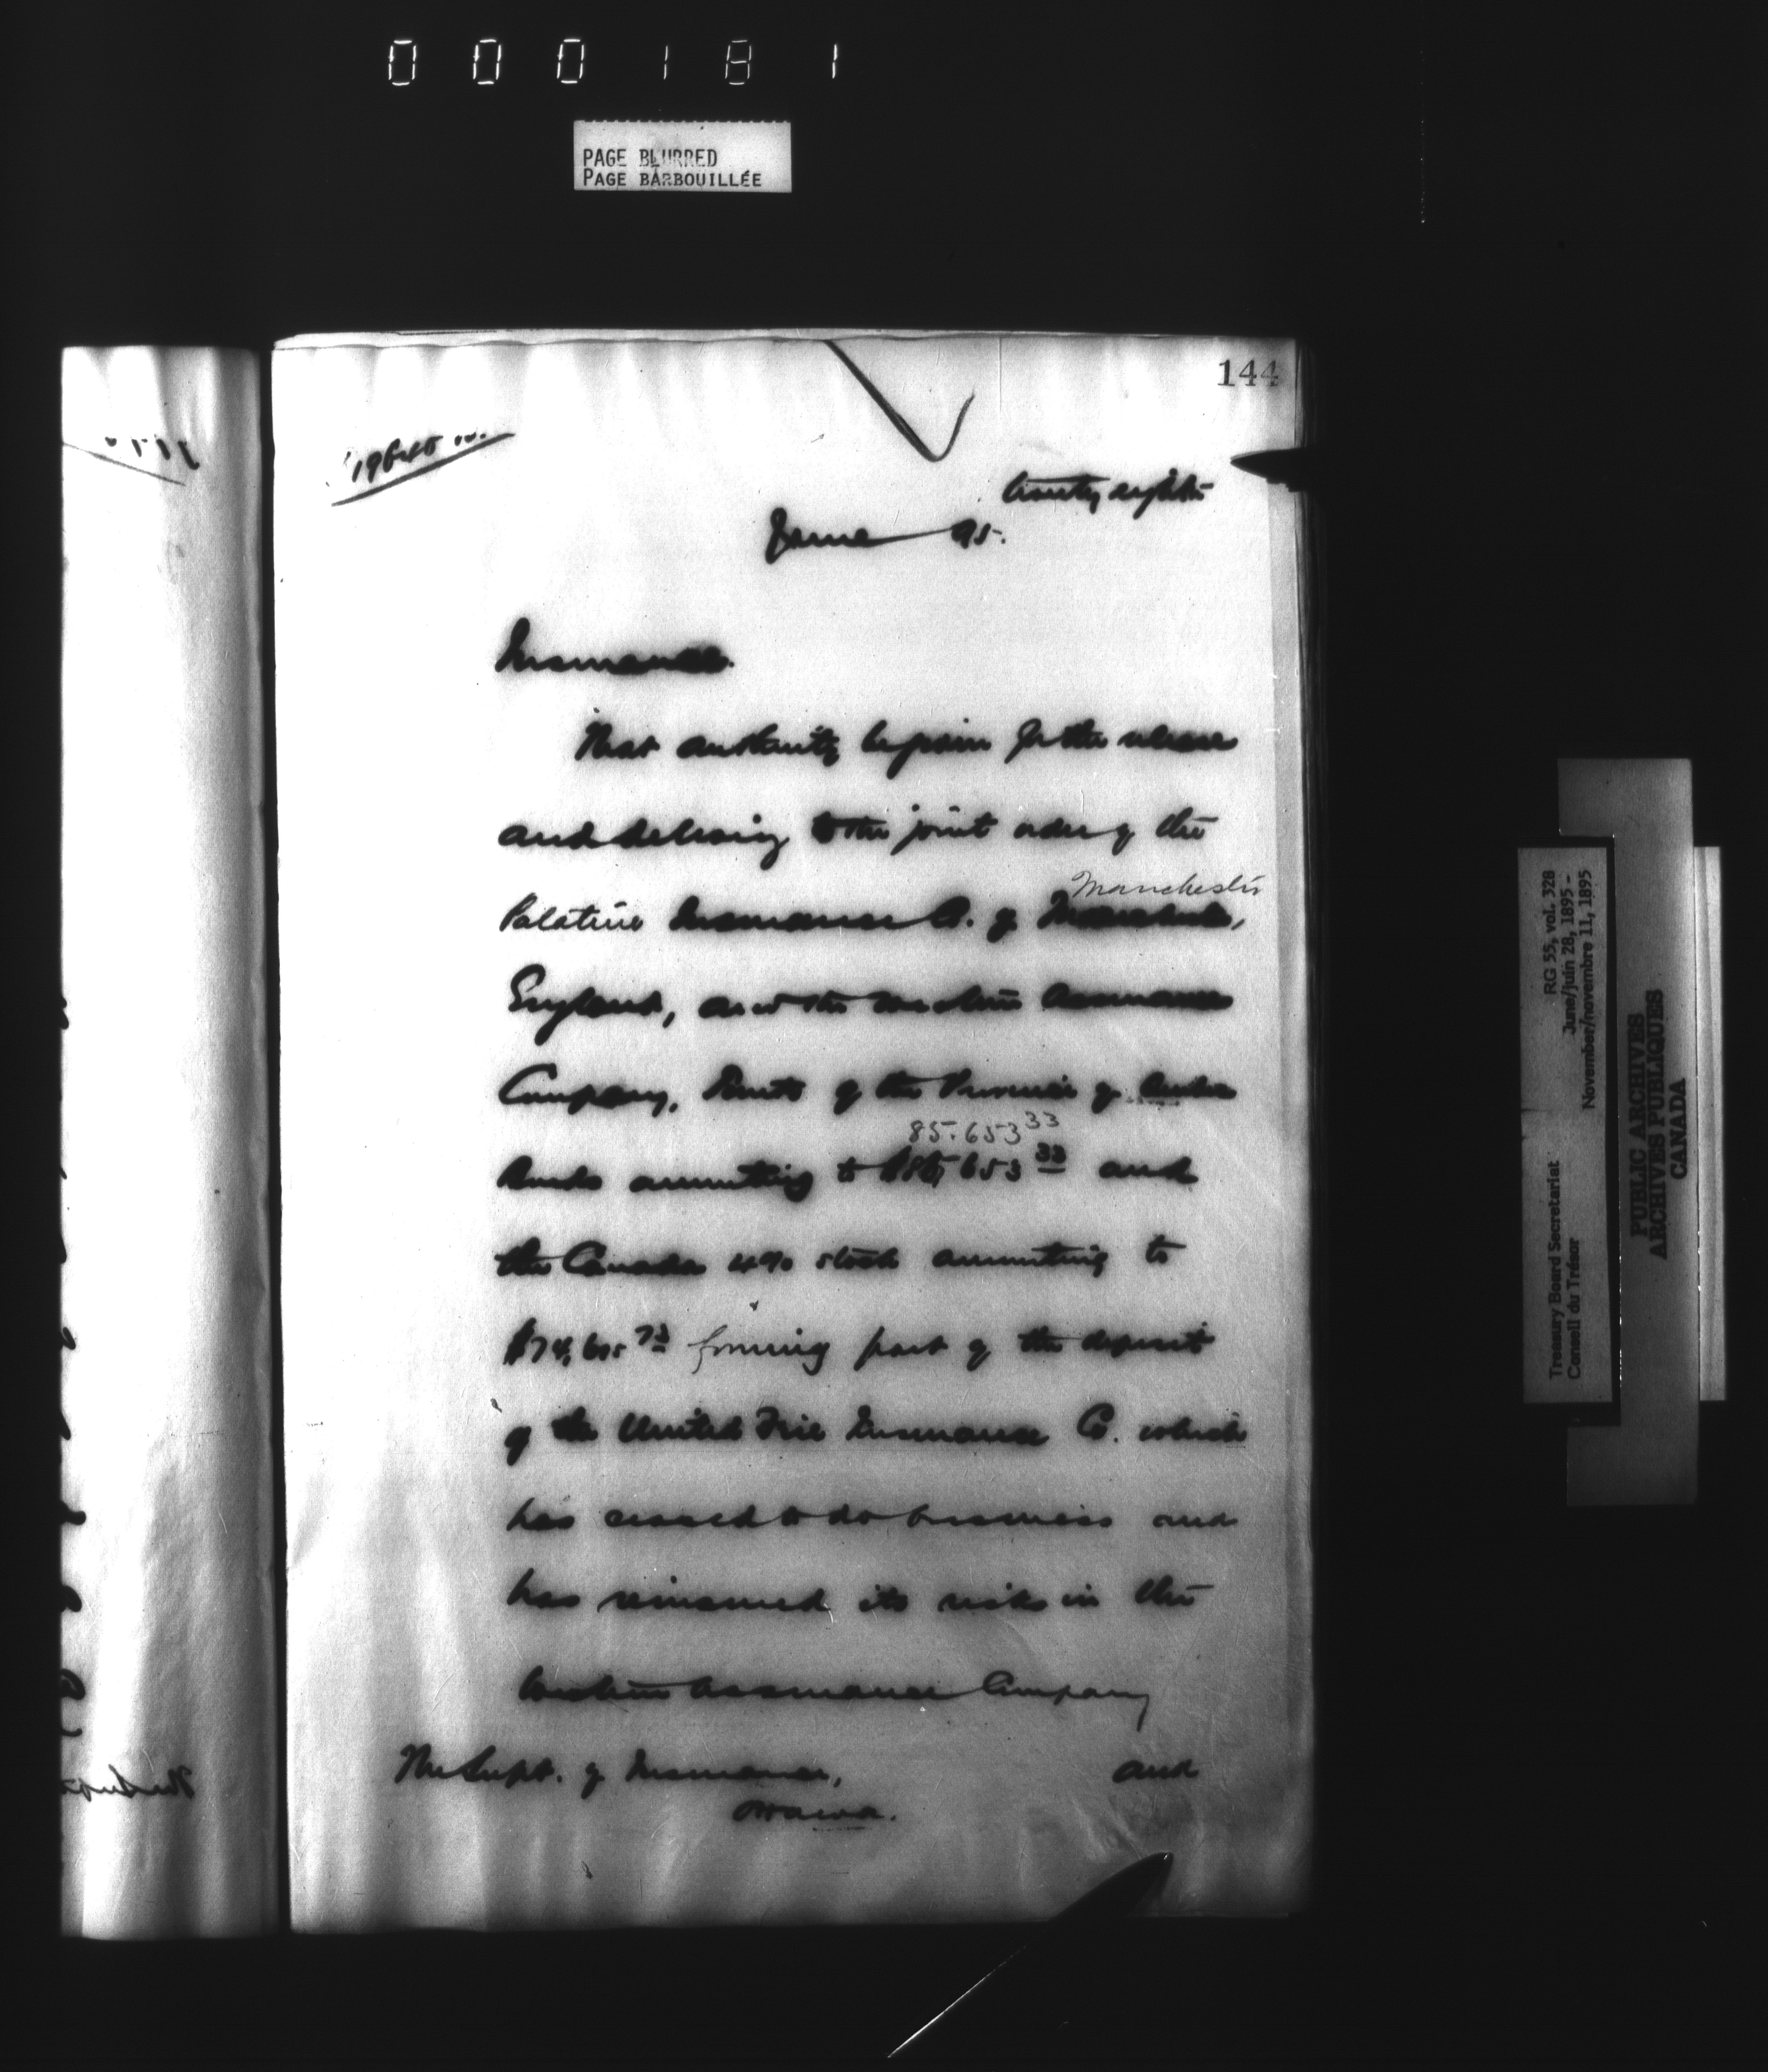 000181
PAGE BLURRED
PAGE BARBOUILLÉE
144
twenty eighth
June 95.
Insurance.
That authority be given for the release
and delivery to the joint order of the
Manchester
Palatine Insurance Co. of Manchester,
England, and the Western Assurance
Company, Bonds of the Province of Quebec
85.653 33
Bonds amounting to 653 33 and
the Canada 4% stock amounting to
forming part of the deposit
of the United Fire Insurance Co. which
has ceased to do business and
has reinsured its risks in the
Western Assurance Company
The Supt. of Insurance, and
Ottawa.
Treasury Board Secretariat RG 55, vol. 328
Conseil du Trésor June/juin 28, 1895 -
November/novembre 11, 1895
PUBLIC ARCHIVES
ARCHIVES PUBLIQUES
CANADA